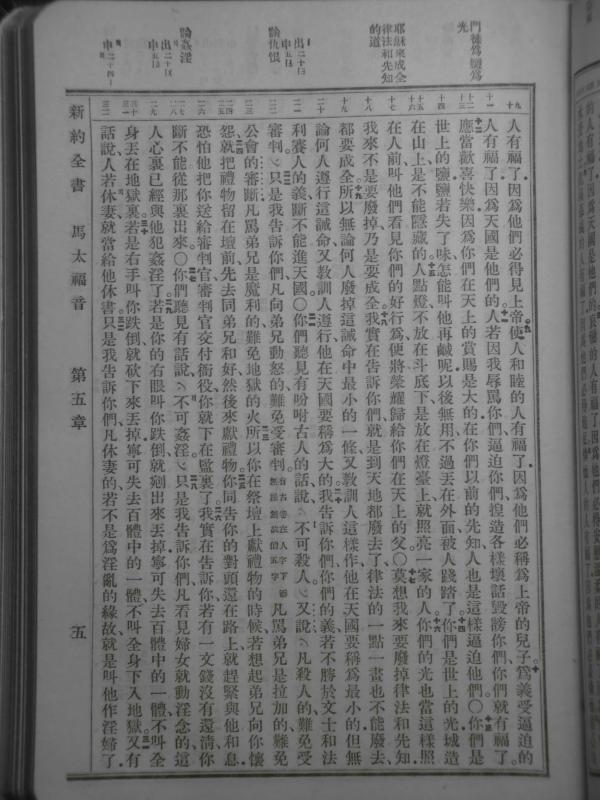 門徒爲鹽爲
光
耶穌來成全
律法和先知
的道
論仇恨
論姦淫
人有福了因爲他們必得見上帝使人和睦的人有福了因爲他們必稱爲上帝的兒子爲義受逼迫的
人有福了因爲天國是他們的人若因我辱罵你們逼迫你們揑造各樣壞話毀謗你們你們就有福了
應當歡喜快樂因爲你們在天上的賞賜是大的在你們以前的先知人也是這樣逼迫他們〇你們是
世上的鹽鹽若失了味怎能叫他再鹹呢以後無用不過丟在外面被人踐踏了你們是世上的光城造
在山上是不能隱藏的人點燈不放在斗底下是放在燈臺上就照亮一家的人你們的光也當這樣照
在人前叫他們看見你們的好行爲便將榮耀歸給你們在天上的父〇莫想我來要廢掉律法和先知
我來不是要廢掉乃是要成全我實在告訴你們就是到天地都廢去了律法的一點一畫也不能廢去
都要成全所以無論何人廢掉這誡命中最小的一條又教訓人這樣作他在天國要稱爲最小的但無
論何人遵行這誡命又教訓人遵行他在天國要稱爲大的我告訴你們你們的義若不勝於文士和法
利賽人的義斷不能進天國〇你們聽見有吩咐古人的話說不可殺人又說凡殺人的難免受
審判只是我告訴你們凡向弟兄動怒的難免受審判凡罵弟兄是拉加的難免
公會的審斷凡罵弟兄是魔利的難免地獄的火所以你在祭壇上獻禮物的時候若想起弟兄向你懷
怨就把禮物留在壇前先去同弟兄和好然後來獻禮物你同告你的對頭還在路上就趕緊與他和息
恐怕他把你送給審判官審判官交付衙役你就下在監裏了我實在告訴你若有一文錢沒有還清你
斷不能從那裏出來〇你們聽見有話說不可姦淫只是我告訴你們凡看見婦女就動淫念的這
人心裏已經與他犯姦淫了若是你的右眼叫你跌倒就剜出來丟掉寧可失去百體中的一體不叫全
身丟在地獄裏若是右手叫你跌倒就砍下來丟掉寧可失去百體中的一體不叫全身下入地獄又有
話說人若休妻就當給他休書只是我告訴你們凡休妻的若不是爲淫亂的緣故就是叫他作淫婦了
新約全書　馬太福音　第五章　五